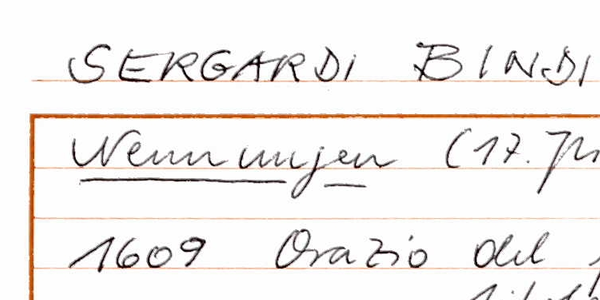 SERGARDI BINDI
Nennungen (17.
1609 Orazio del